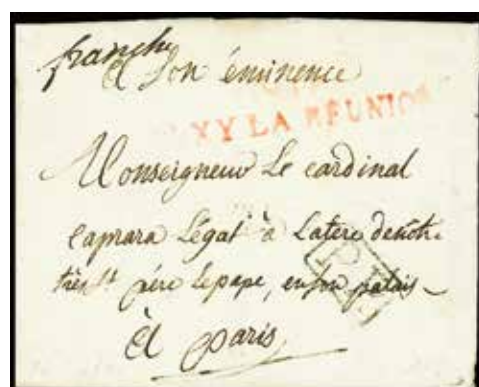 franche
A Son éminence
XY LA RÉUNION
Monseigneur Le cardinal
Caprara Légat à Latere denôtre
très St père lepape, enson palais
à paris